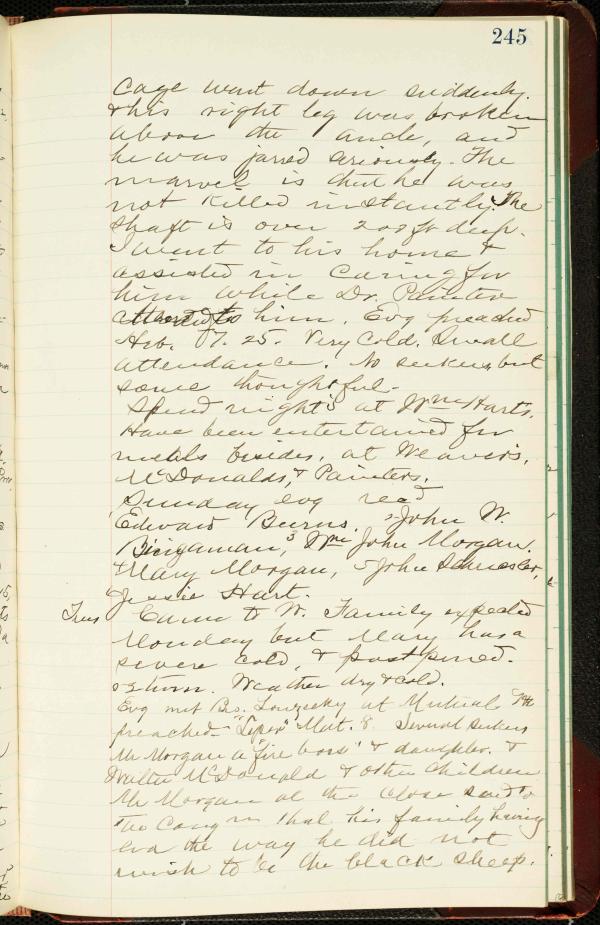 245
cage went down suddenly.
& his right leg was broken
above the ancle, and
he was jarred seriously. The
marvel is that he was
not killed instantly. The
shaft is over 200 ft deep.
I went to his home &
assisted in caring for
him while Dr. Painter
attended to him. Evg preached
Heb. 7. 25. Very cold. Small
attendance. No seekers but
some thoughtful.
Spend nights at Wm Harts.
Have been entertained for
meals besides, at Weavers,
McDonalds, & Painters.
Sunday evg recd
Edward Burns. 2 John W.
Bingaman, 3 Wm John Morgan.
4 Mary Morgan, 5 John Schuesler,
6 Jessie Hart.
Tues Came to W. Family expected
Monday but Mary has a
severe cold, & postponed.
return. Weather dry & cold.
Evg met Bro. at Mutual
preached "Leper" Mat. 8. Several seekers
Mr Morgan a "fire boss" & daughter. &
Walter McDonald & other children
Mr Morgan at the close said to
the Cong'n that his family having
led the way he did not
wish to be the black sheep.